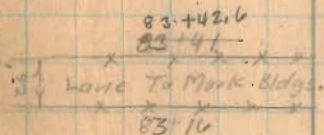 83+42.6
83+41
Lane To Mark. Bldgs.
83+16